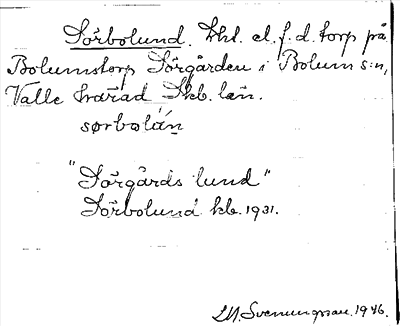 Sörbolund. Lht. el. f. d. torp på
Bolumstorp Sörgården i Bolum s:n,
Valle härad Skb. län.
sørbolán
"Sörgårds lund"
Sörbolund kb. 1931.
LM. Svenungsson. 1946.